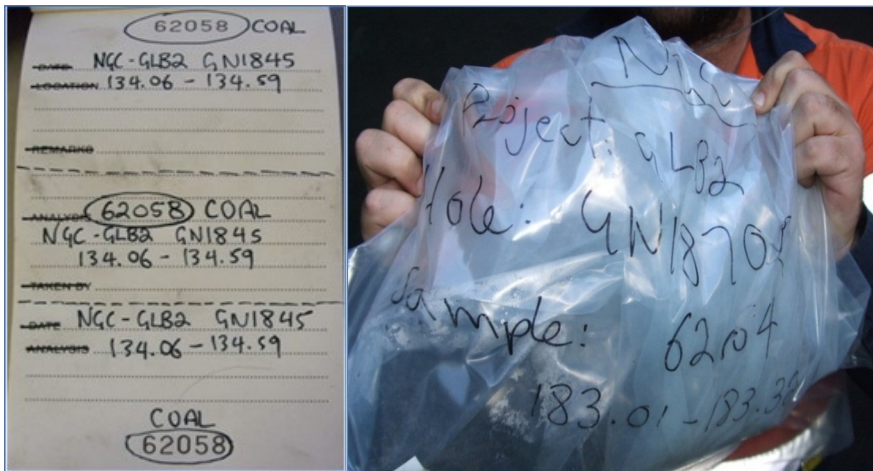 62058 COAL
DATE NGC-GLB2 GN1845
LOCATION 134.06 - 134.59
REMARKS
ANALYSIS 62058 COAL
NGC-GLB2 GN1845
134.06 - 134.59
TAKEN BY
DATE NGC-GLB2 GN1845
ANALYSIS 134.06 - 134.59
COAL
62058
Project: GLB2
Hole:
Sample:
183.01 - 183.38